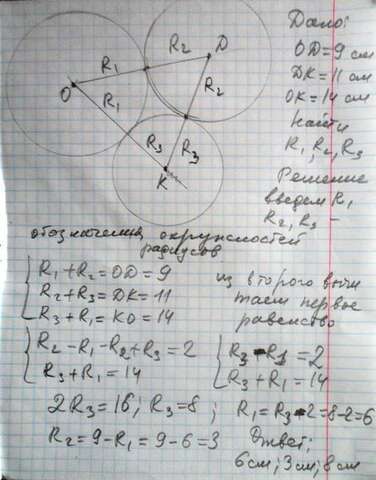 Дано:
OD=9 см
DK=11 см
OK=14 см
Найти
R₁, R₂, R₃
Решение
введем R₁
R₂, R₃ –
R₁ R₂ D
O R₁ R₂
R₃ R₃
K
обозначения окружностей
радиусов
R₁+R₂=OD=9
R₂+R₃=DK=11
R₃+R₁=KO=14
из второго вычи
таем первое
равенство
R₂-R₁-R₂+R₃=2
R₃+R₁=14
R₃-R₁=2
R₃+R₁=14
2R₃=16; R₃=8; R₁=R₃-2=8-2=6
R₂=9-R₁=9-6=3 Ответ:
6см; 3см; 8см